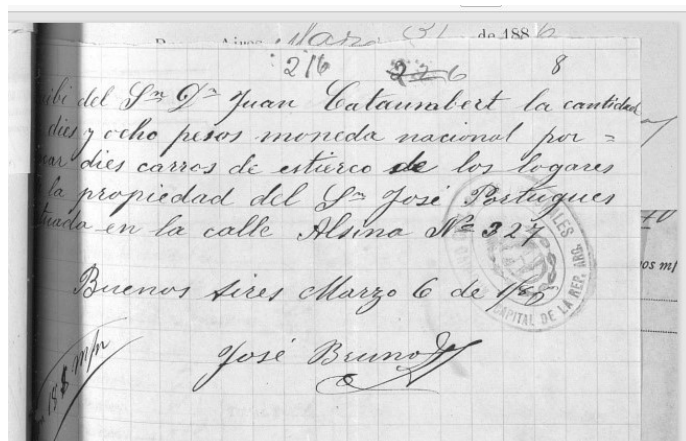 Marzo 31 de 1886
216 226 8
ibi del Sr Dn Juan Cataumbert la cantidad
dies y ocho pesos moneda nacional por =
ar dies carros de estierco de los logares
la propiedad del Sr José Portugues
tuada en la calle Alsina Nº 327
os m/
Buenos Aires Marzo 6 de
CAPITAL DE LA REP. ARG.
José Bruno
18 $ m/n